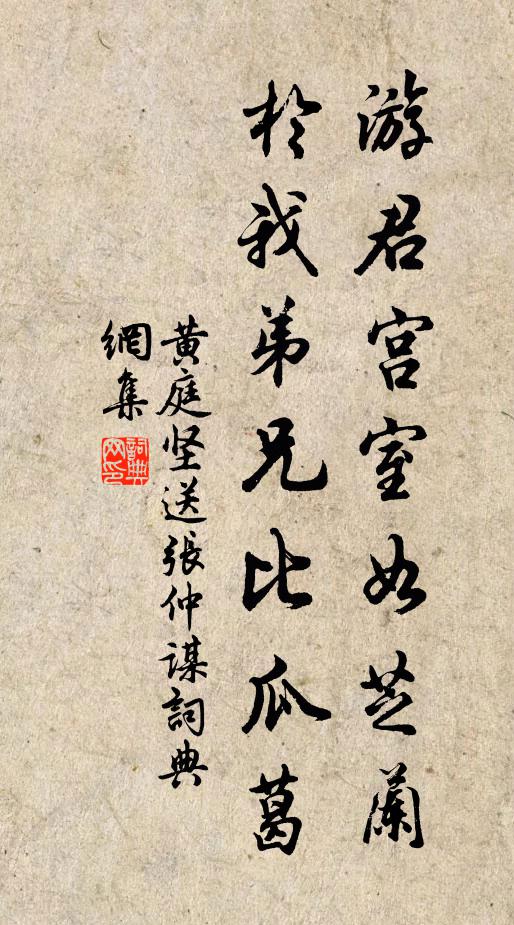 游君宫室如芝蘭
於我弟兄比瓜葛
黄庭坚送張仲謀詞典
網集
詞典
网印